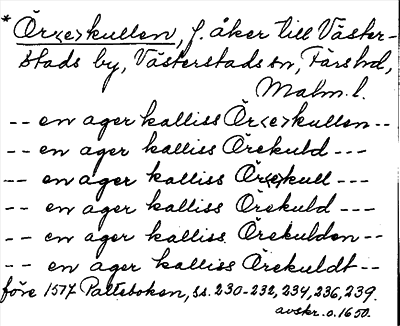 * Ör<e>kullen, f. åker till Väster-
stads by, Västerstads sn, Färs hd,
Malm. l.
-- en ager kalliss Ör<e>kullen --
-- en ager kalliss Örekuld ---
-- en ager kalliss Ör<e>kull ---
-- en ager kalliss Örekuld ---
-- en ager kalliss Örekulden --
-- en ager kalliss Örekuldt --
före 1577 Palteboken, ss. 230-232, 234, 236, 239.
avskr. o. 1650.